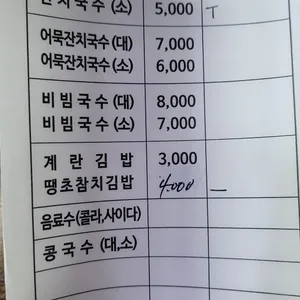 잔치국수 (소) 5,000 T
어묵잔치국수 (대) 7,000
어묵잔치국수 (소) 6,000
비빔국수 (대) 8,000
비빔국수 (소) 7,000
계란김밥 3,000
땡초참치김밥 4.000 —
음료수(콜라,사이다)
콩국수 (대,소)